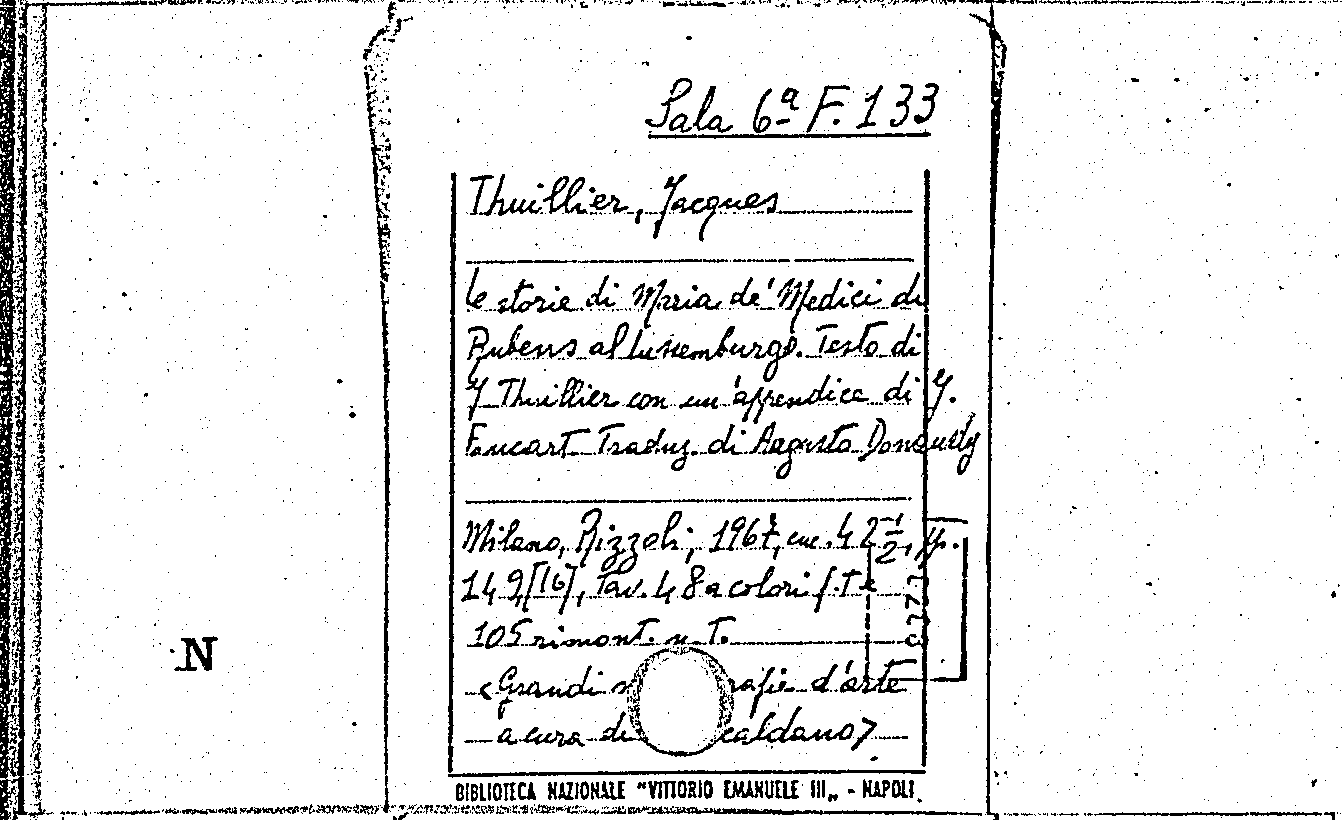 Sala 6ª F. 133
Thuillier, Jacques
Le storie di Maria de' Medici di
Rubens al Lussemburgo. Testo di
J. Thuillier con un'appendice di J.
Foucart. Traduz. di Augusto Donaudy
Milano, Rizzoli, 1967, cm. 42 1/2, pp.
149, [16], Tav. 48 a colori f. T. e
105 rimont. n. T.
<Grandi d'arte
a cura di caldano>
N
BIBLIOTECA NAZIONALE "VITTORIO EMANUELE III„ - NAPOLI